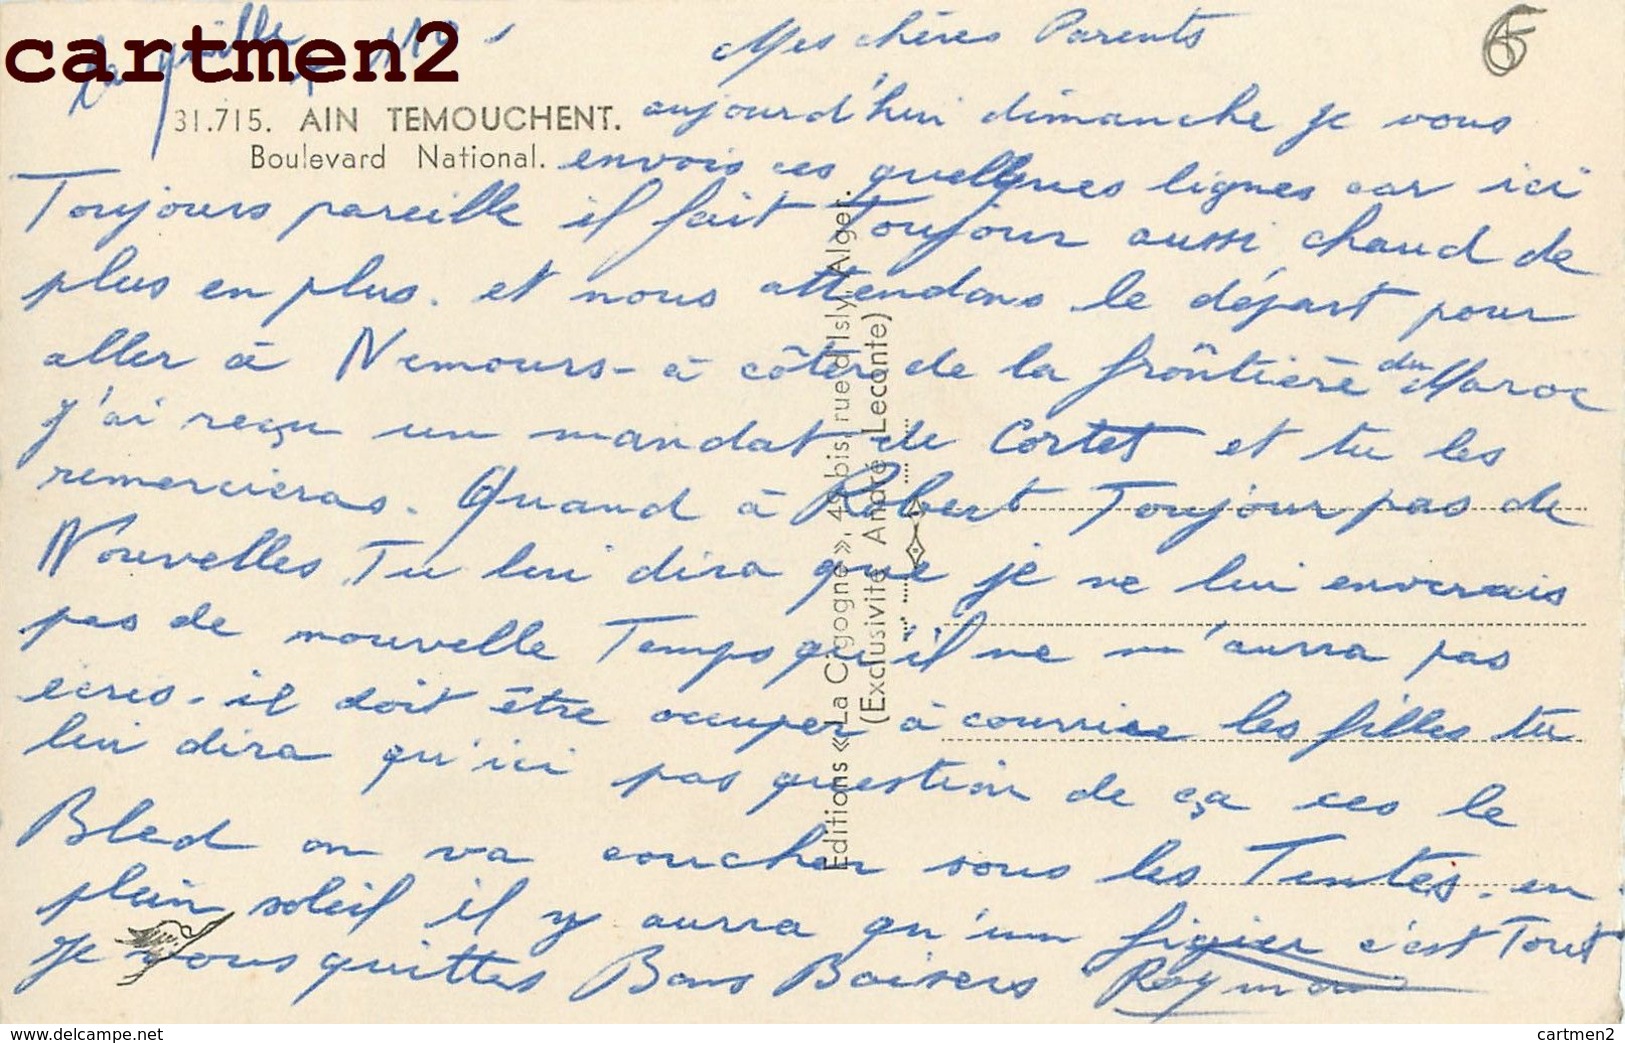 cartmen2
Mes chères Parents
31.715. AIN TEMOUCHENT.
Boulevard National.
aujourd'hui dimanche je vous
envois ces quellques lignes car ici
Toujours pareille il fait Toujour aussi chaud de
plus en plus. et nous attendons le départ pour
aller à Nemours - à côter de la frontière du Maroc
j'ai reçu un mandat de Cortet et tu les
remercieras. Quand à Robert Toujour pas de
Nouvelles Tu lui dira que je ne lui enverais
pas de nouvelle Temps qu'il ne m'aurra pas
ecris. il doit être occuper à courrire les filles tu
lui dira qu'ici pas question de ça ces le
Bled on va coucher sous les Tentes. en
plein soleil il y aurra qu'un figier c'est Tout
Je vous quittes Bons Baisers Raymond
Editions «La Cigogne», 49 bis, rue d'Isly, Alger.
(Exclusivité André Leconte)
65
www.delcampe.net
cartmen2